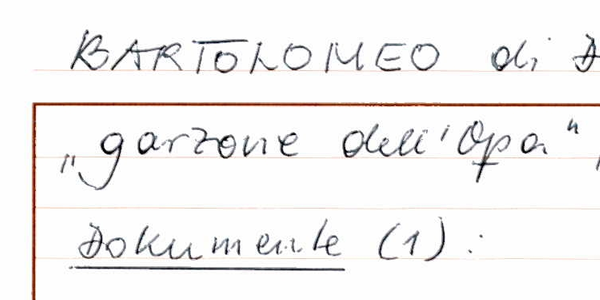 BARTOLOMEO di
„garzone dell'Opa",
Dokumente (1):